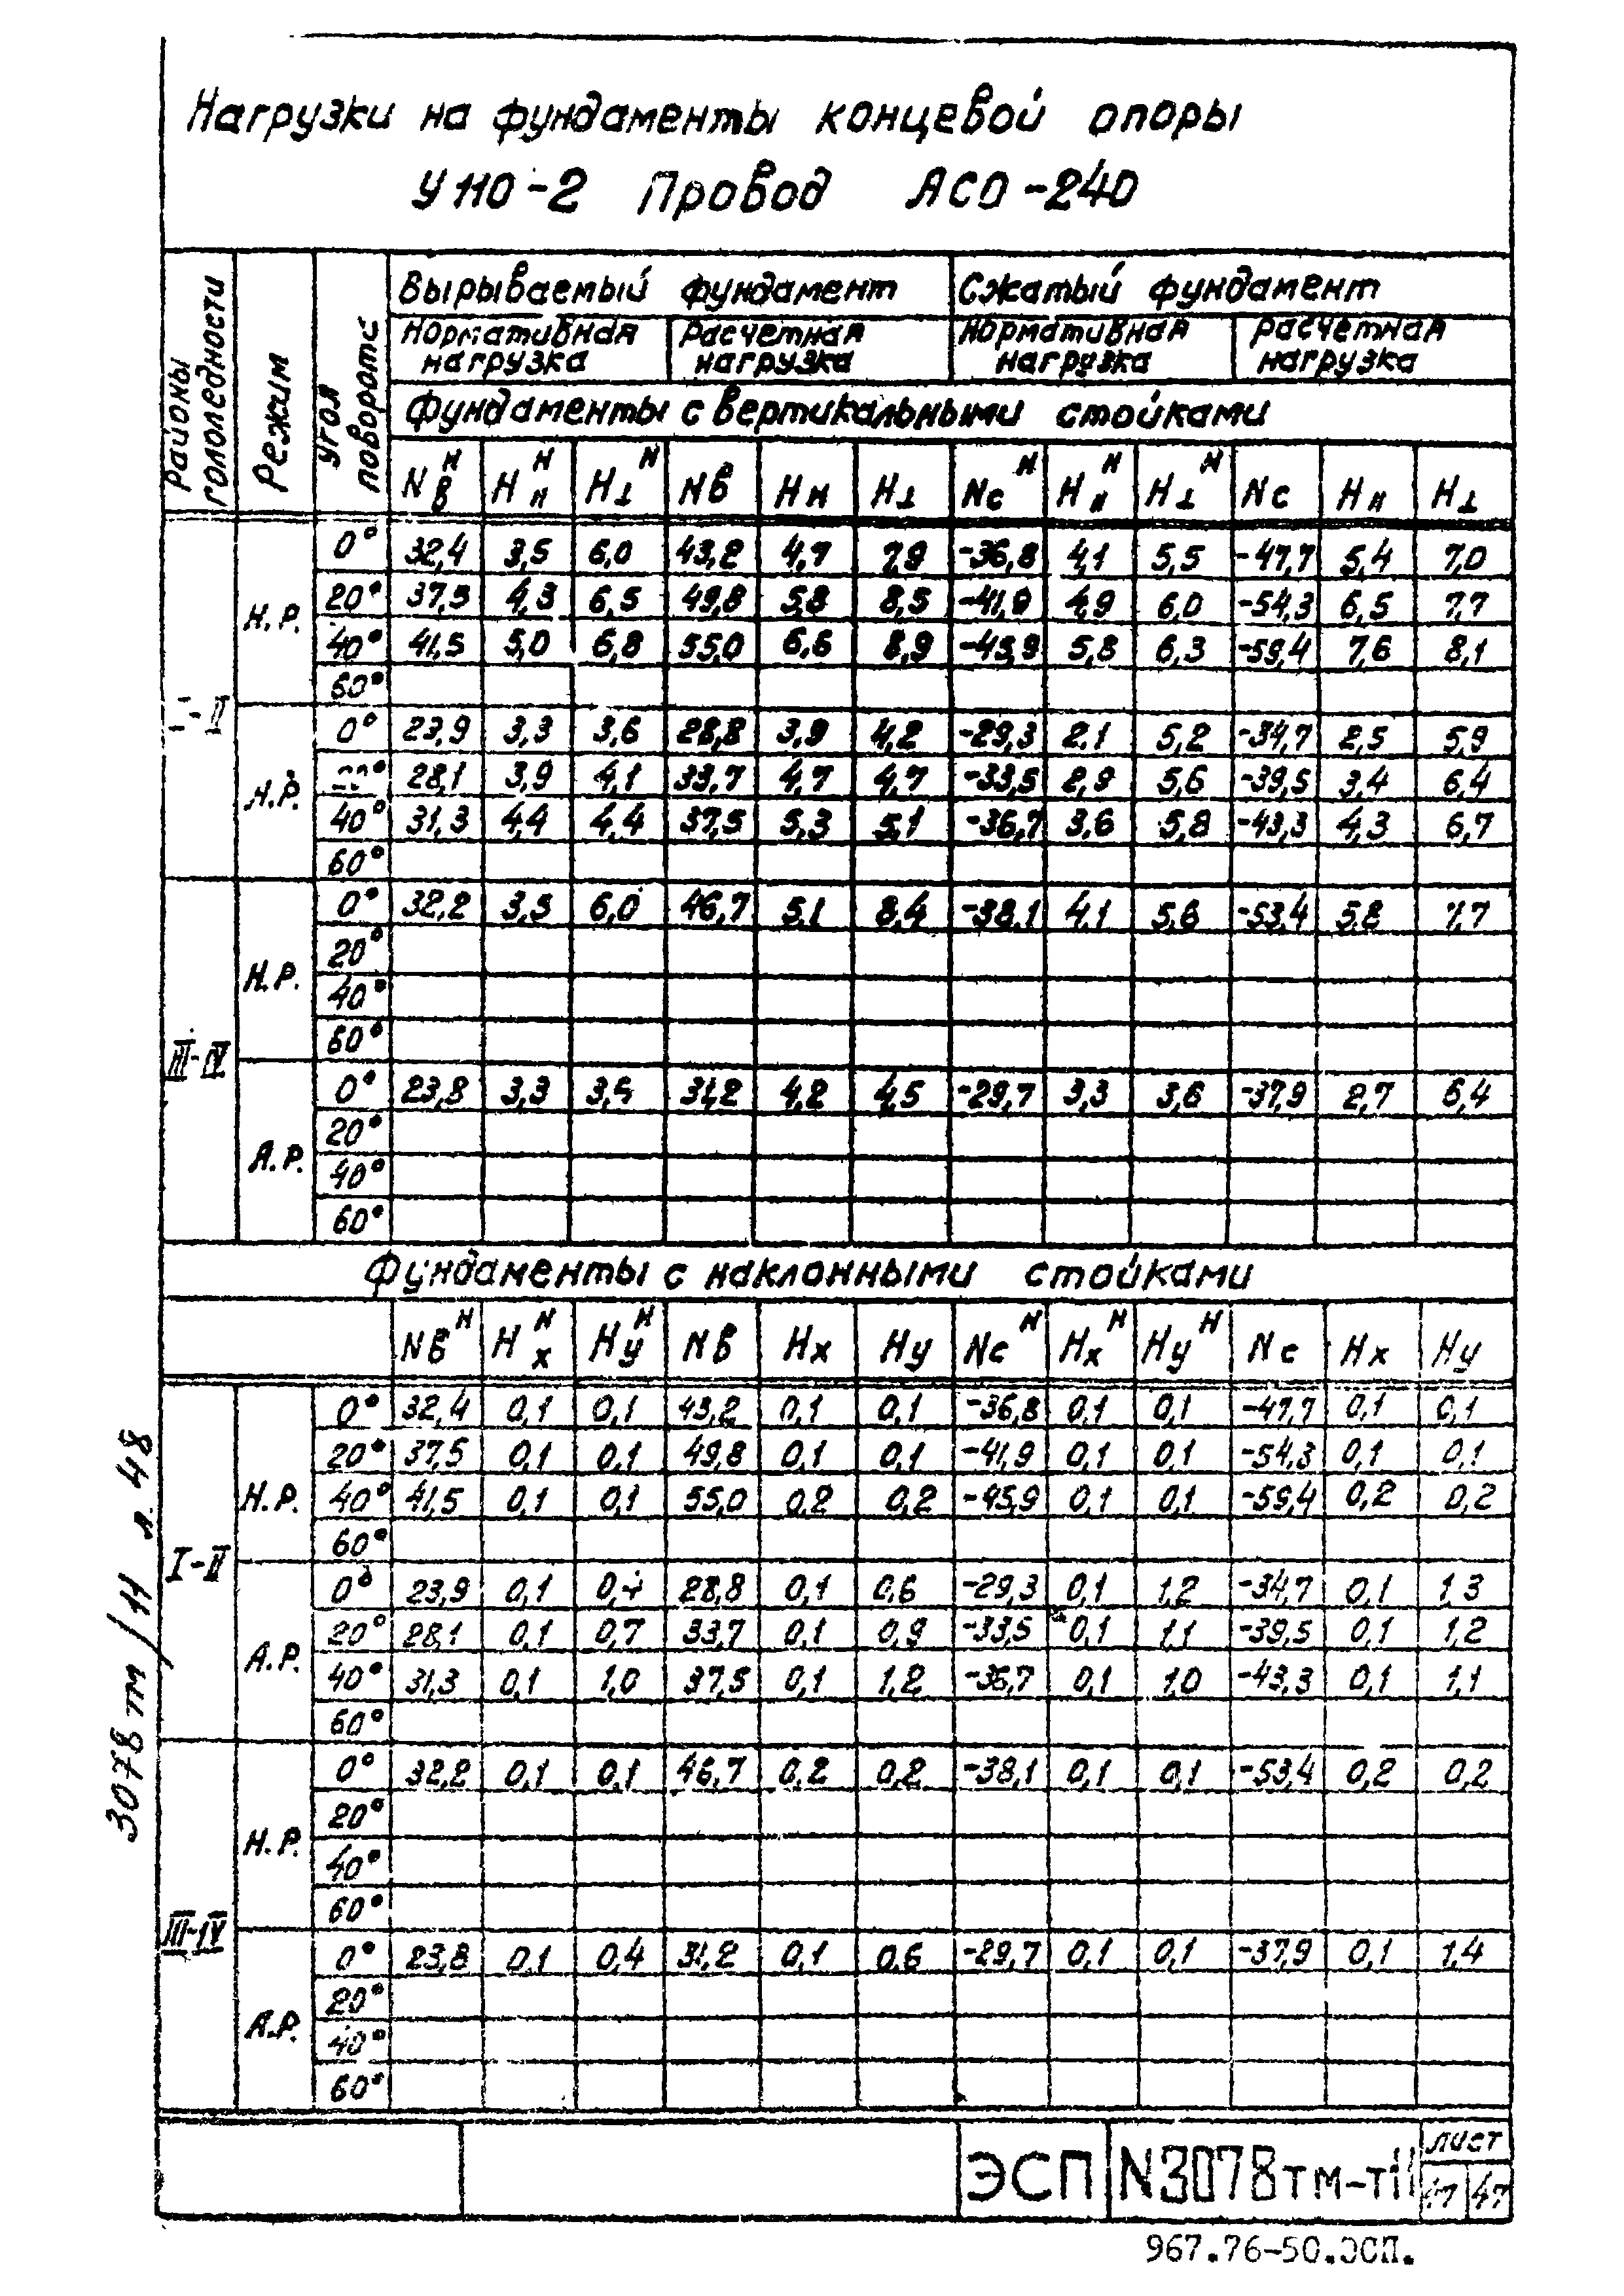 Нагрузки на фундаменты концевой опоры
У110-2 Провод АСО-240
Районы гололедности
Режим
Угол поворота
Вырываемый фундамент Сжатый фундамент
Нормативная нагрузка Расчетная нагрузка Нормативная нагрузка Расчетная нагрузка
Фундаменты с вертикальными стойками
Nв^н Hн^н H⊥^н Nв Hн H⊥ Nс^н Hн^н H⊥^н Nс Hн H⊥
I-II
Н.Р.
0° 32,4 3,5 6,0 43,2 4,7 7,9 -36,8 4,1 5,5 -47,7 5,4 7,0
20° 37,5 4,3 6,5 49,8 5,8 8,5 -41,9 4,9 6,0 -54,3 6,5 7,7
40° 41,5 5,0 6,8 55,0 6,6 8,9 -45,9 5,8 6,3 -59,4 7,6 8,1
60°
А.Р.
0° 23,9 3,3 3,6 28,8 3,9 4,2 -29,3 2,1 5,2 -34,7 2,5 5,9
20° 28,1 3,9 4,1 33,7 4,7 4,7 -33,5 2,9 5,6 -39,5 3,4 6,4
40° 31,3 4,4 4,4 37,5 5,3 5,1 -36,7 3,6 5,8 -43,3 4,3 6,7
60°
III-IV
Н.Р.
0° 32,2 3,5 6,0 46,7 5,1 8,4 -38,1 4,1 5,6 -53,4 5,8 7,7
20°
40°
60°
А.Р.
0° 23,8 3,3 3,5 31,2 4,2 4,5 -29,7 3,3 3,6 -37,9 2,7 6,4
20°
40°
60°
Фундаменты с наклонными стойками
Nв^н Hх^н Hу^н Nв Hх Hу Nс^н Hх^н Hу^н Nс Hх Hу
I-II
Н.Р.
0° 32,4 0,1 0,1 43,2 0,1 0,1 -36,8 0,1 0,1 -47,7 0,1 0,1
20° 37,5 0,1 0,1 49,8 0,1 0,1 -41,9 0,1 0,1 -54,3 0,1 0,1
40° 41,5 0,1 0,1 55,0 0,2 0,2 -45,9 0,1 0,1 -59,4 0,2 0,2
60°
А.Р.
0° 23,9 0,1 0,4 28,8 0,1 0,6 -29,3 0,1 1,2 -34,7 0,1 1,3
20° 28,1 0,1 0,7 33,7 0,1 0,9 -33,5 0,1 1,1 -39,5 0,1 1,2
40° 31,3 0,1 1,0 37,5 0,1 1,2 -36,7 0,1 1,0 -43,3 0,1 1,1
60°
III-IV
Н.Р.
0° 32,2 0,1 0,1 46,7 0,2 0,2 -38,1 0,1 0,1 -53,4 0,2 0,2
20°
40°
60°
А.Р.
0° 23,8 0,1 0,4 31,2 0,1 0,6 -29,7 0,1 0,1 -37,9 0,1 1,4
20°
40°
60°
3078тм/11 л. 48
ЭСП N3078тм-т11 лист
47 47
967.76-50.ЭСП.